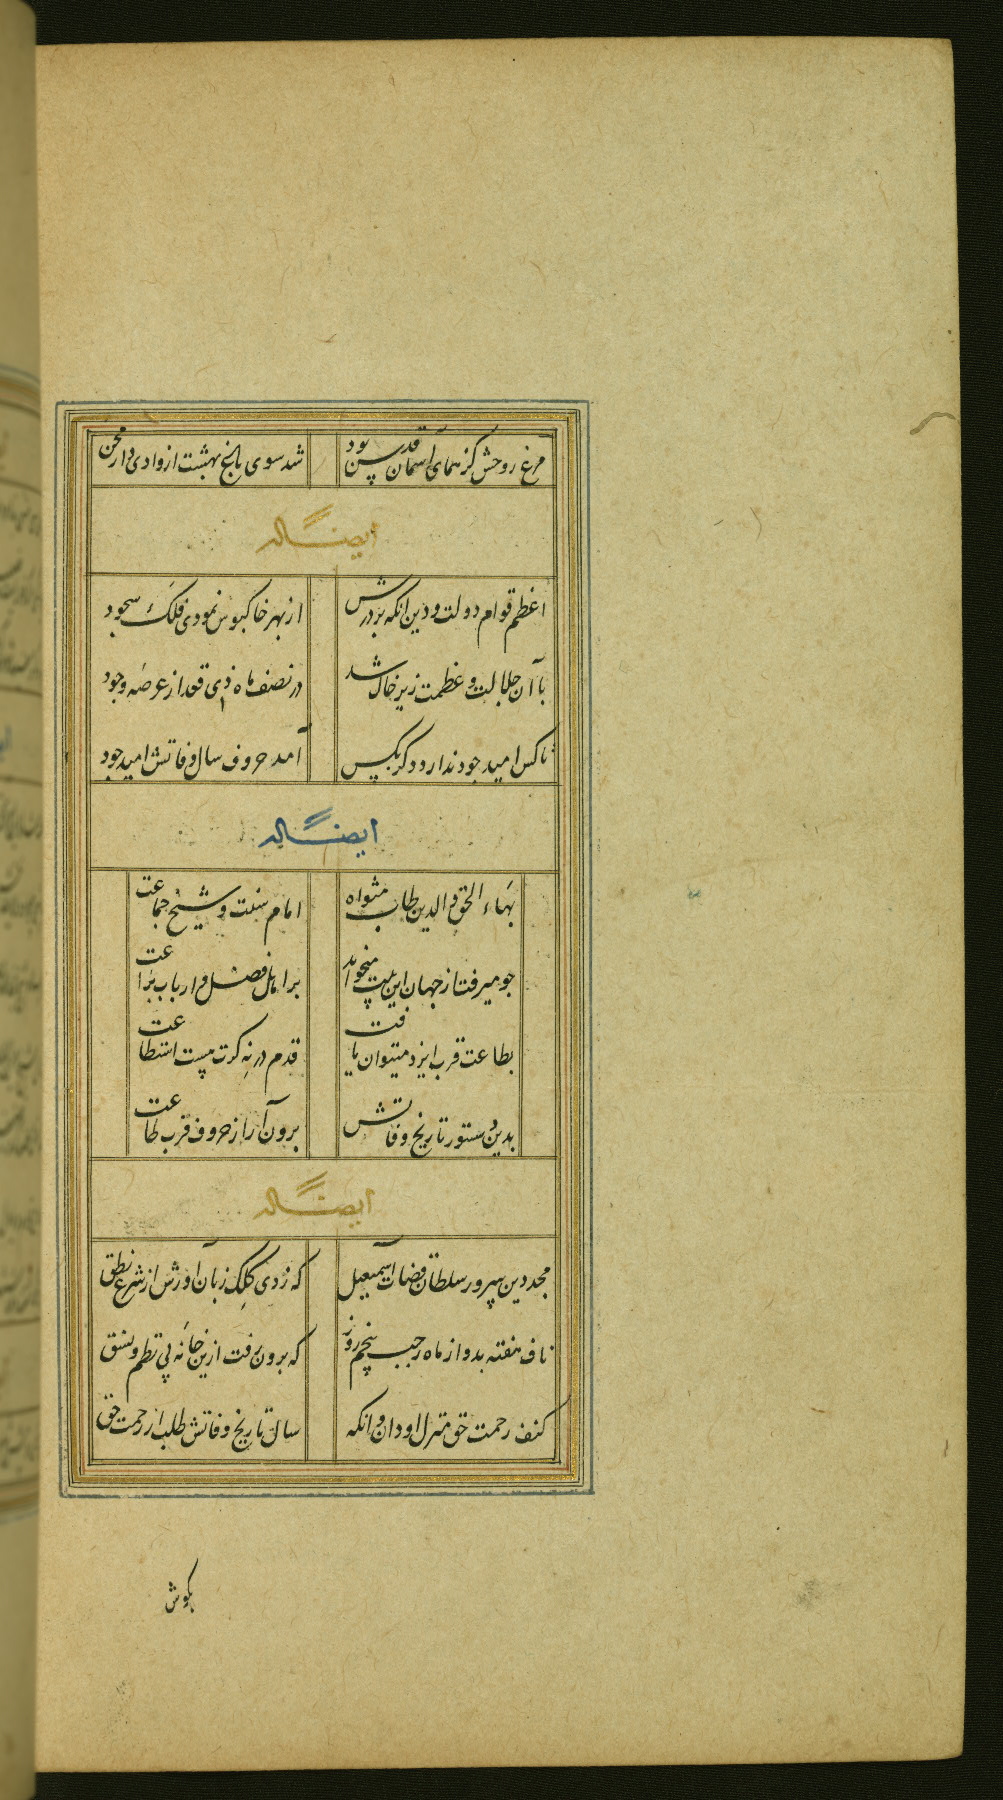 مرغ روحش کز همای آسمان قدس بود شد سوی باغ بهشت از وادی دار محن
ایضاً له
اعظم قوام دولت و دین انکه بر درش از بهر خاکبوس نمودی فلک سجود
با آن جلالت و عظمت زیر خاک شد در نصف ماه ذی قعد از عرصه وجود
تا کس امید جود ندارد دکر بکس آمد حروف سال وفاتش امید جود
ایضاً له
بهاء الحق و الدین طاب مثواه امام سنت و شیخ جماعت
جو میرفت از جهان این بیت میخواند بر اهل فضل و ارباب براعت
بطاعت قرب ایزد میتوان یافت قدم در نه کرت هست استطاعت
بدین دستور تاریخ وفاتش برون آر از حروف قرب طاعت
ایضاً له
مجد دین سرور سلطان قضات اسمعیل که زدی کلک زبان آورش از شرع نطق
ناف هفته بد و از ماه رجب پنجم روز که برون رفت ازین خانه بی نظم و نسق
کنف رحمت حق منزل او دان وانکه سال تاریخ وفاتش طلب از رحمت حق
بکوش